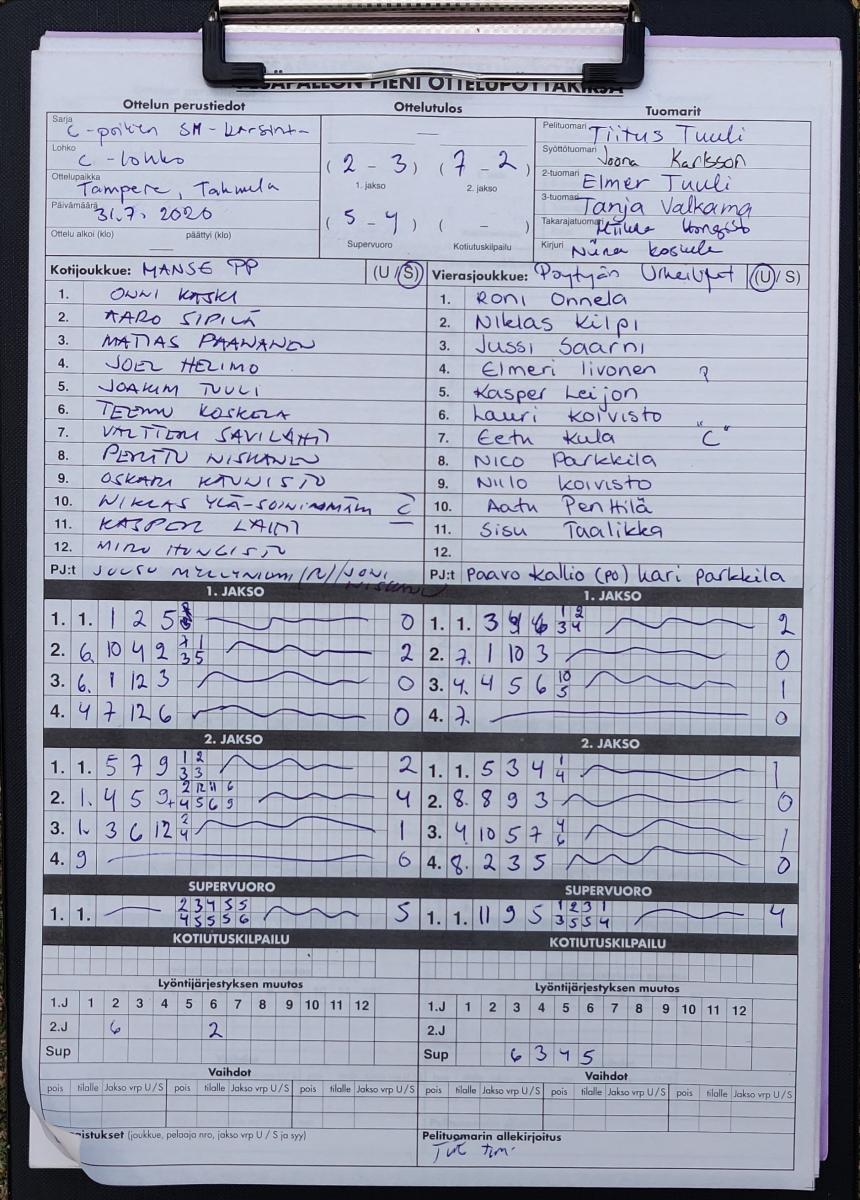 PESÄPALLON PIENI OTTELUPÖYTÄKIRJA
Ottelun perustiedot
Sarja C-poikien SM-karsinta
Lohko C-lohko
Ottelupaikka Tampere, Tahmela
Päivämäärä 31.7.2020
Ottelu alkoi (klo) — päättyi (klo)
Ottelutulos
—
(2 - 3) (7 - 2)
1. jakso 2. jakso
(5 - 4) ( - )
Supervuoro Kotiutuskilpailu
Tuomarit
Pelituomari Tiitus Tuuli
Syöttötuomari Joona Karlsson
2-tuomari Elmer Tuuli
3-tuomari Tanja Valkama
Takarajatuomari
Kirjuri Niina
Kotijoukkue: MANSE PP (U / S)
1. ONNI KASKI
2. AARO SIPILÄ
3. MATIAS PAANANEN
4. JOEL HELIMO
5. JOAKIM TUULI
6. TEEMU KOSKELA
7. VALTTERI SAVILAHTI
8. PERTTU NISKANEN
9. OSKARI KAUNISTO
10. NIKLAS YLÄ-SOININMÄKI C
11. KASPER LAHTI
12. MIRO HONGISTO
PJ:t
Vierasjoukkue: Pöytyän Urheilijat (U / S)
1. Roni Onnela
2. Niklas Kilpi
3. Jussi Saarni
4. Elmeri Iivonen ?
5. Kasper Leijon
6. Lauri Koivisto
7. Eetu Kula "C"
8. Nico Parkkila
9. Niilo Koivisto
10. Aatu Penttilä
11. Sisu Taalikka
12.
PJ:t Paavo Kallio (PO) Kari Parkkila
1. JAKSO
1. 1. 1 2 5 0
2. 6. 10 4 2 7 1 3 5 2
3. 6. 1 12 3 0
4. 4 7 12 6 0
2. JAKSO
1. 1. 5 7 9 1 2 3 3 2
2. 1. 4 5 9 2 12 11 6 4 5 6 9 4
3. 1. 3 6 12 2 4 1
4. 9 6
SUPERVUORO
1. 1. — 2 3 4 5 5 4 5 5 5 6 5
KOTIUTUSKILPAILU
Lyöntijärjestyksen muutos
1.J 1 2 3 4 5 6 7 8 9 10 11 12
2.J 6 2
Sup
Vaihdot
pois tilalle Jakso vrp U / S pois tilalle Jakso vrp U / S pois tilalle Jakso vrp U / S
(joukkue, pelaaja nro, jakso vrp U / S ja syy)
1. JAKSO
1. 1. 3 4 6 1 2 3 4 2
2. 7. 1 10 3 0
3. 4. 4 5 6 10 5 1
4. 7. 0
2. JAKSO
1. 1. 5 3 4 1 4 1
2. 8. 8 9 3 0
3. 4. 10 5 7 4 6 1
4. 8. 2 3 5 0
SUPERVUORO
1. 1. 11 9 5 1 2 3 1 3 5 5 4 4
KOTIUTUSKILPAILU
Lyöntijärjestyksen muutos
1.J 1 2 3 4 5 6 7 8 9 10 11 12
2.J
Sup 6 3 4 5
Vaihdot
pois tilalle Jakso vrp U / S pois tilalle Jakso vrp U / S pois tilalle Jakso vrp U / S
Pelituomarin allekirjoitus